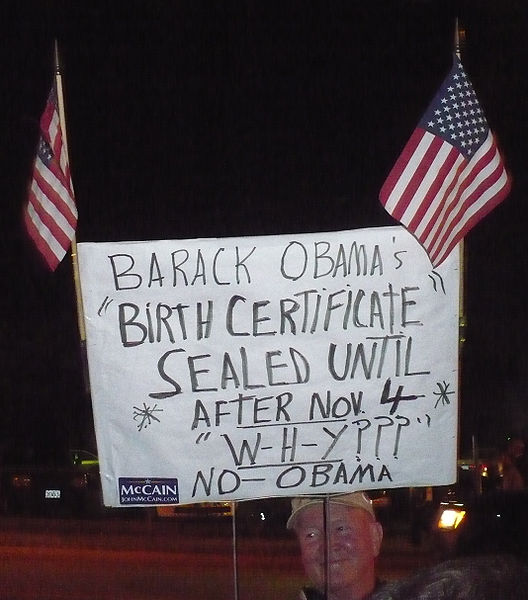 BARACK OBAMA's
"BIRTH CERTIFICATE"
SEALED UNTIL
* AFTER NOV. 4 *
"W-H-Y???"
NO-OBAMA
McCAIN
JOHNMcCAIN.COM